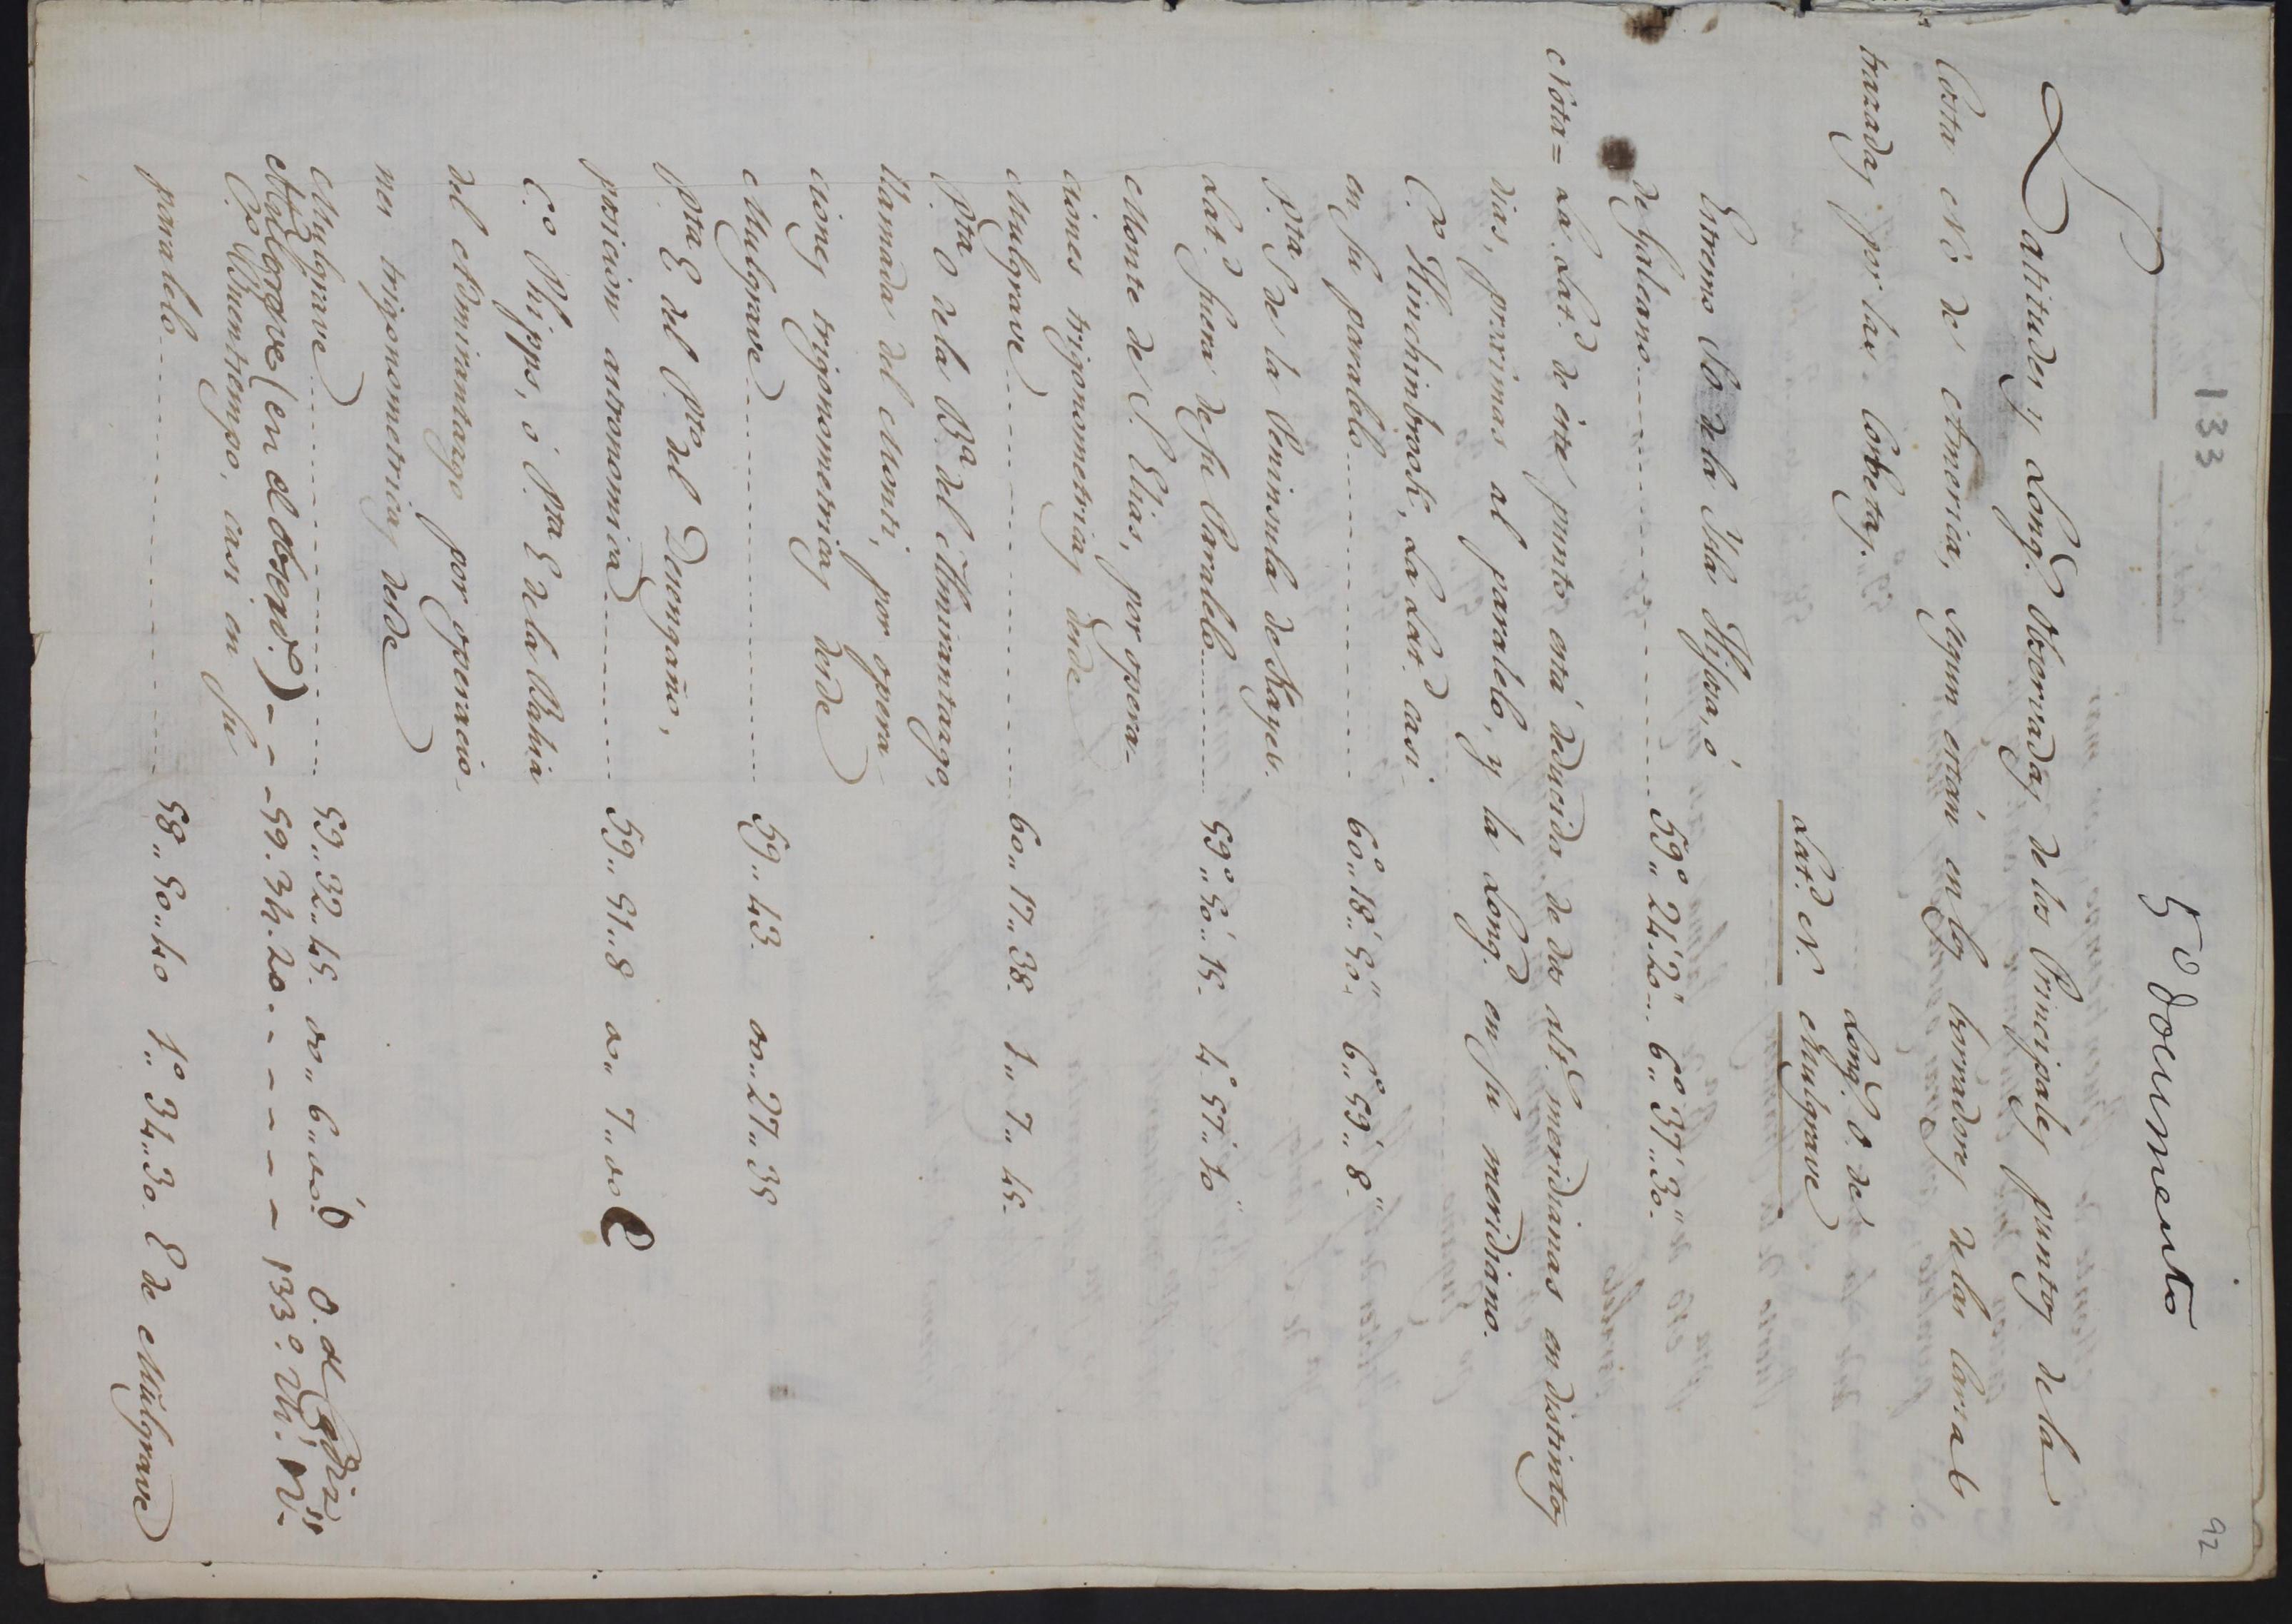 133
92
5º documento
Latitudes y Longs. Observadas de los Principales puntos de la
Costa NO de America, segun están en los borradores de las Cartas
trazadas por las Corbetas.
Longd. O. de
Latd. N. Mulgrave
Estremo SO de la Isla Hijosa, ó
de Galeano 59º„ 24'. 20"... 6º„ 37'„ 30"
Nota = La Latd. de este punto está deducida de dos alts. meridianas en distintos
dias, proximas al paralelo, y la Longd. en su meridiano.
Cº. Hinchinbrook, La Latd. casi
en su paralelo 60º„ 18'„ 50" 6º„ 59'„ 8"
Pta. S de la Peninsula de Kayes.
Latd. fuera de su Paralelo 59º„ 50'„ 15 4º 57'„ 10"
Monte de S. Elias, por opera-
ciones trigonometricas desde
Mulgrave 60„ 17„ 38. 1„ 7„ 45
Pta. O de la Ba. del Almirantazgo,
llamada del Monti, por opera-
ciones trigonometricas desde
Mulgrave 59„ 43. 00„ 27„ 35
Pta E del Pto. del Desengaño,
posicion astronomica 59„ 51„ 8 00„ 7„ 00 E
C.º Phipps, ó Pta E de la Bahia
del Almirantazgo por operacio-
nes trigonometricas desde
Mulgrave 59„ 32„ 45. 00„ 6„ 00 O. de
Mulgrave (en el observº.) - - - 59. 34. 20. - - - - - - 133º.
C.º Buentiempo, casi en su
paralelo 58„ 50„ 40 1º„ 34„ 30. E de Mulgrave